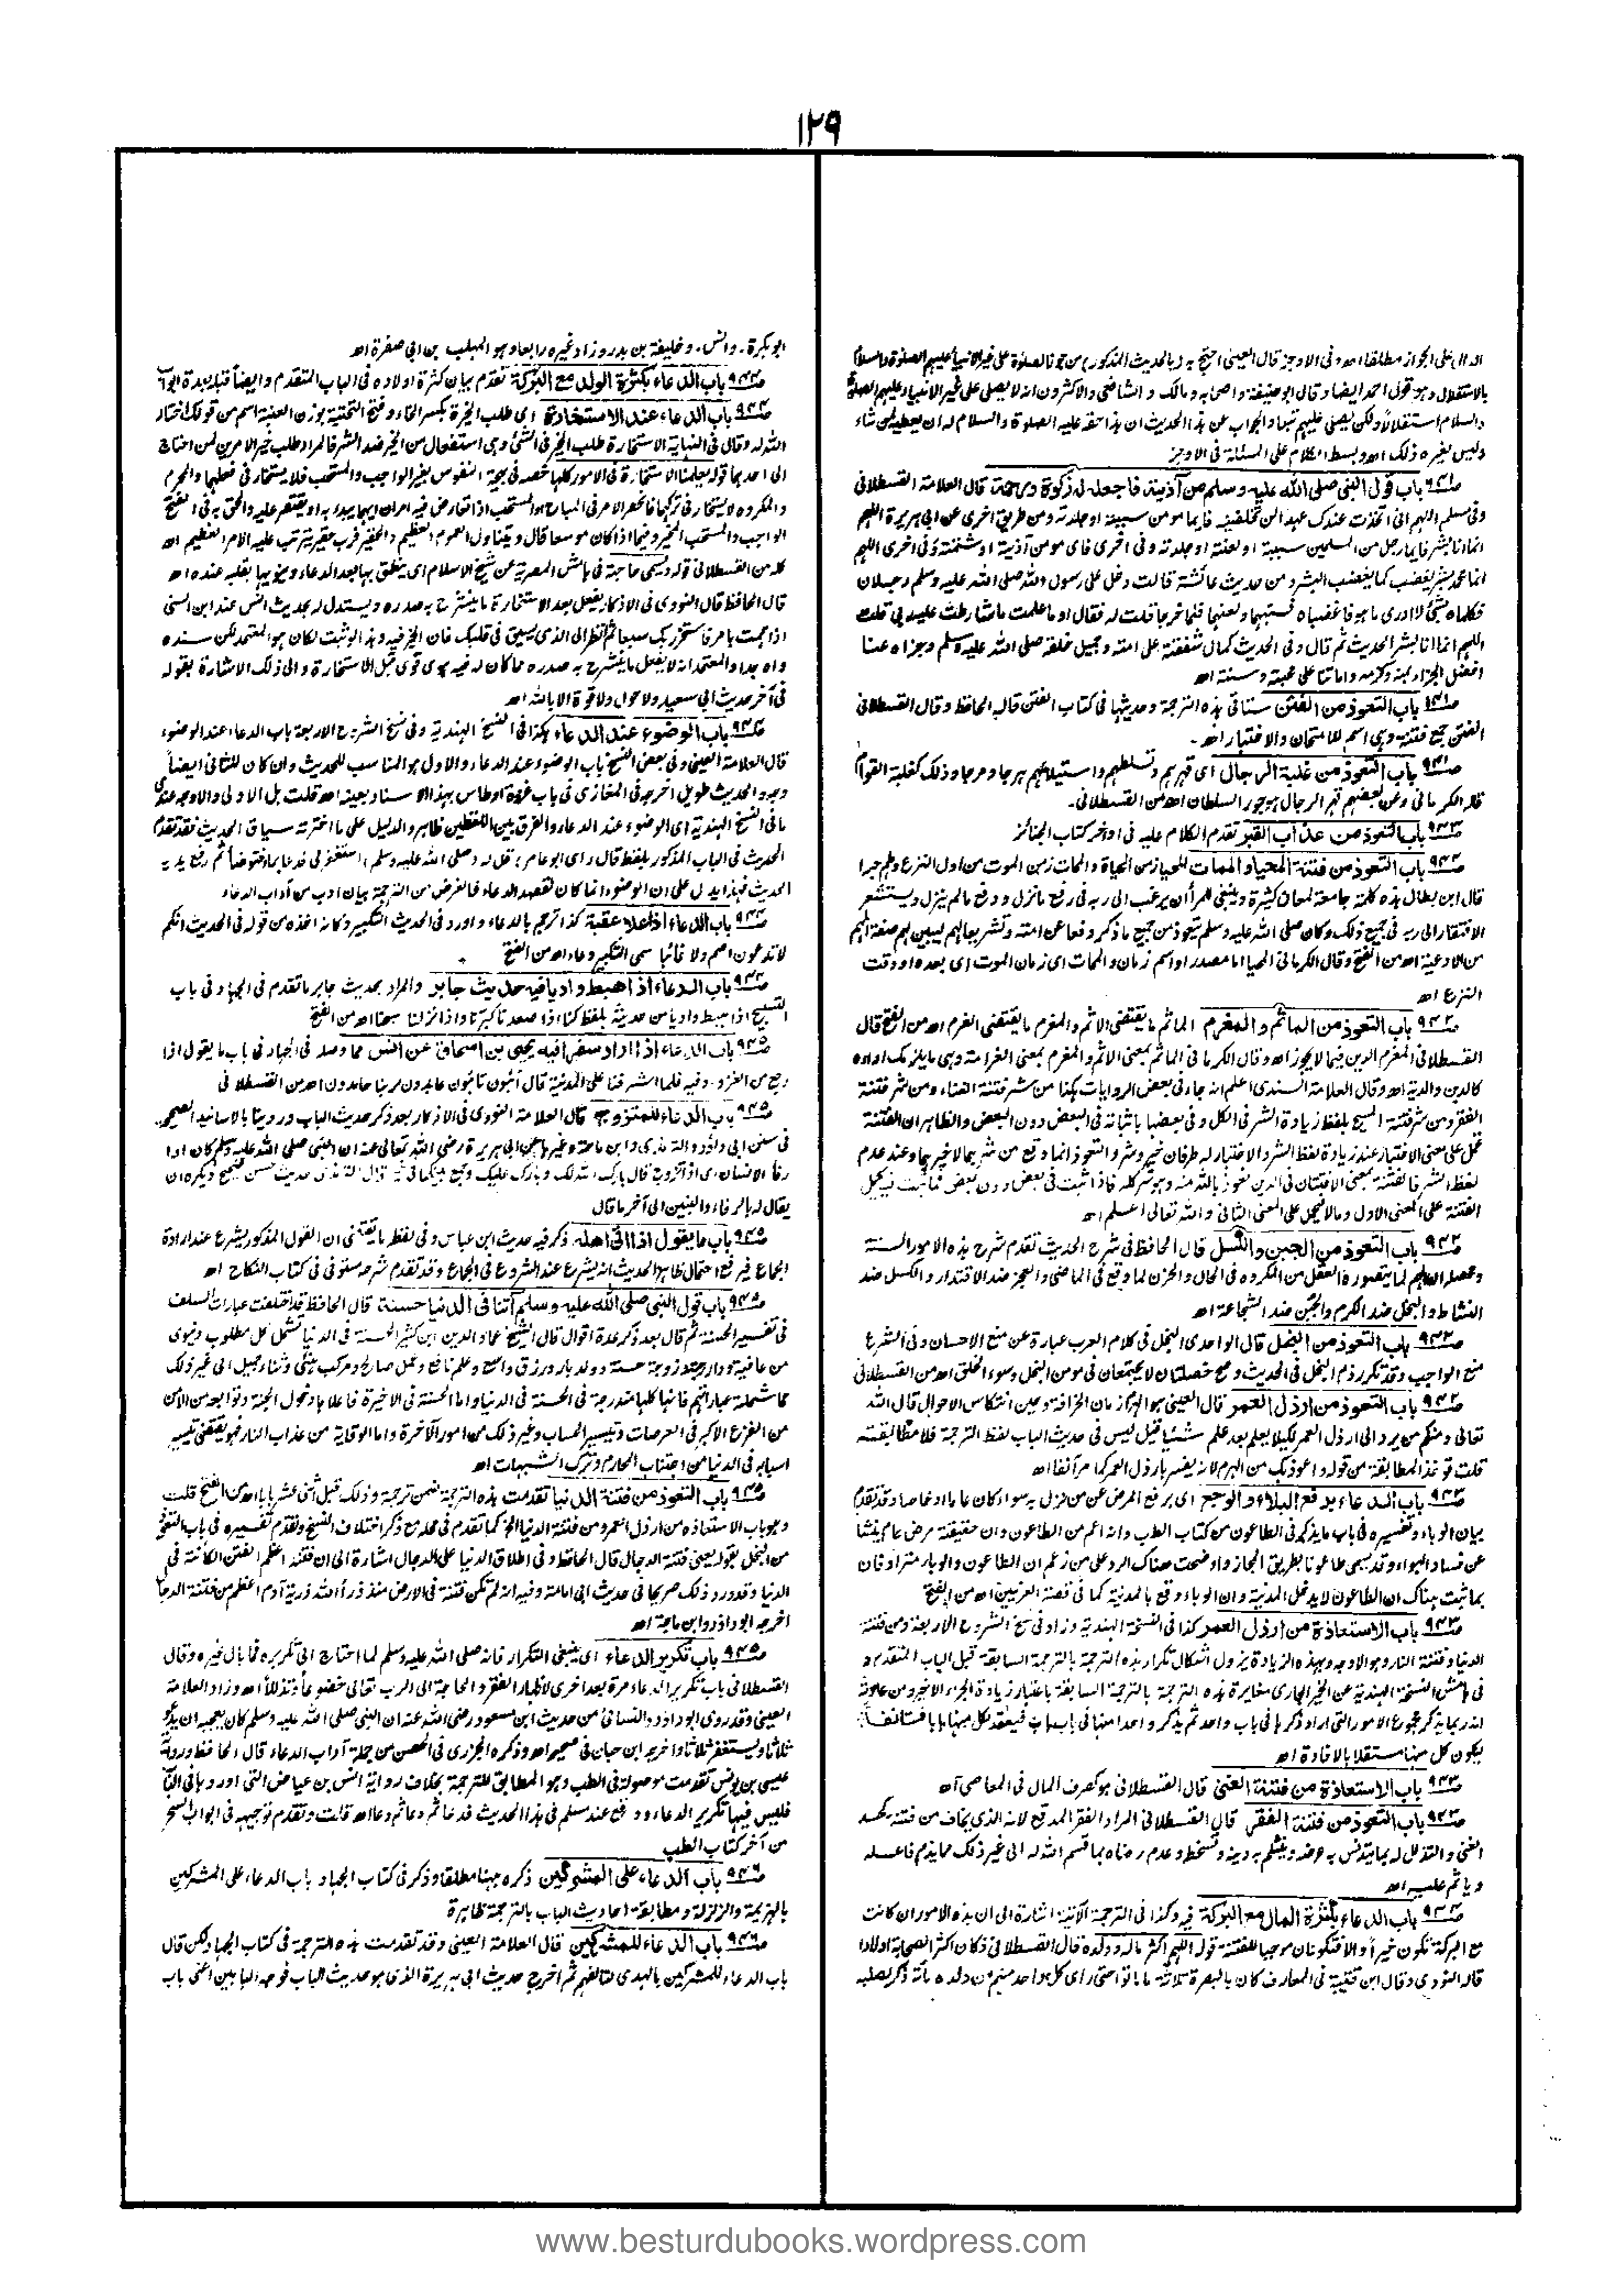 ۱۲۹
الدال على الجواز مطلقا اھ وفى الاوجز قال العينى احتج به (بالحديث المذكور) من جوز الصلوة على غير الانبياء عليهم الصلوة والسلام
بالاستقلال وهو قول احمد ايضا وقال ابو حنيفة واصحابه ومالك والشافعى والاكثرون انه لا يصلى على غير الانبياء عليهم الصلوة
والسلام استقلالا ولكن يصلى عليهم تبعا والجواب عن هذا الحديث ان هذا حقه عليه الصلوة والسلام له ان يعطيه لمن شاء
وليس لغيره ذلك اھ وبسط الكلام على المسئلة فى الاوجز
۹۴۱ باب قول النبى صلى الله عليه وسلم من آذيته فاجعله له زكوة ورحمة قال العلامة القسطلانى
وفى مسلم اللهم انى اتخذت عندك عهدا لن تخلفنيه فايما مومن سببته او جلدته ومن طريق اخرى عن ابى هريرة اللهم
انما انا بشر فايما رجل من المسلمين سببته او لعنته او جلدته وفى اخرى فاى مومن آذيته او شتمته وفى اخرى اللهم
انما محمد بشر يغضب كما يغضب البشر ومن حديث عائشة قالت دخل على رسول الله صلى الله عليه وسلم رجلان
فكلماه بشئ لا ادرى ما هو فاغضباه فسبهما ولعنهما فلما خرجا قلت له فقال او ما علمت ما شارطت عليه ربى قلت
اللهم انما انا بشر الحديث ثم قال وفى الحديث كمال شفقته على امته وجميل خلقه صلى الله عليه وسلم وجزاه عنا
افضل الجزاء بمنه وكرمه واماتنا على محبته وسنته اھ
۹۴۱ باب التعوذ من الفتن ستاتى هذه الترجمة وحديثها فى كتاب الفتن قاله الحافظ وقال القسطلانى
الفتن جمع فتنة وهى اسم للامتحان والاختبار اھ۔
۹۴۱ باب التعوذ من غلبة الرجال اى قهرهم وتسلطهم واستيلائهم هرجا ومرجا وذلك كغلبة العوام
قاله الكرمانى وعن بعضهم قهر الرجال هو جور السلطان اھ من القسطلانى۔
۹۴۲ باب التعوذ من عذاب القبر تقدم الكلام عليه فى اواخر كتاب الجنائز
۹۴۲ باب التعوذ من فتنة المحيا والممات المحيا زمن الحياة والممات زمن الموت من اول النزع وهلم جرا
قال ابن بطال هذه كلمة جامعة لمعان كثيرة وينبغى للمرأ ان يرغب الى ربه فى رفع ما نزل ودفع ما لم ينزل ويستشعر
الافتقار الى ربه فى جميع ذلك وكان صلى الله عليه وسلم يتعوذ من جميع ما ذكر دفعا عن امته وتشريعا لهم ليبين لهم صفة المهم
من الادعية اھ من الفتح وقال الكرمانى المحيا اما مصدر او اسم زمان والممات اى زمان الموت اى بعده او وقت
النزع اھ
۹۴۲ باب التعوذ من الماثم والمغرم الماثم ما يقتضى الاثم والمغرم ما يقتضى الغرم اھ من الفتح قال
القسطلانى المغرم الدين فيما لا يجوز اھ وقال الكرمانى الماثم بمعنى الاثم والمغرم بمعنى الغرامة وهى ما يلزمك اداءه
كالدين والدية اھ وقال العلامة السندى اعلم انه جاء فى بعض الروايات هكذا من شر فتنة الغناء ومن شر فتنة
الفقر ومن شر فتنة المسيح بلفظ زيادة الشر فى الكل وفى بعضها باثباته فى البعض دون البعض والظاهر ان الفتنة
تحمل على معنى الاختبار عند زيادة لفظ الشر والاختبار له طرفان خير وشر والتعوذ انما وقع من شرهما لا خيرهما وعند عدم
لفظ الشر فالفتنة بمعنى الافتتان فى الدين نعوذ بالله منه وهو شر كله فاذا ثبت فى بعض دون بعض فما ثبت فيحمل
الفتنة على المعنى الاول ومالا فيحمل على المعنى الثانى والله تعالى اعلم اھ
۹۴۲ باب التعوذ من الجبن والكسل قال الحافظ فى شرح الحديث تقدم شرح هذه الامور الستة
ومحصله ان الهم لما يتصوره العقل من المكروه فى الحال والحزن لما وقع فى الماضى والعجز ضد الاقتدار والكسل ضد
النشاط والبخل ضد الكرم والجبن ضد الشجاعة اھ
۹۴۲ باب التعوذ من البخل قال الواحدى البخل فى كلام العرب عبارة عن منع الاحسان وفى الشرع
منع الواجب وقد تكرر ذم البخل فى الحديث وصح خصلتان لا يجتمعان فى مومن البخل وسوء الخلق اھ من القسطلانى
۹۴۲ باب التعوذ من ارذل العمر قال العينى هو الهرم زمان الخرافة وحين انتكاس الاحوال قال الله
تعالى ومنكم من يرد الى ارذل العمر لكيلا يعلم بعد علم شيئا قيل ليس فى حديث الباب لفظ الترجمة فلا مطابقة
قلت تؤخذ المطابقة من قوله واعوذ بك من الهرم لانه يفسر بارذل العمر كما مر آنفا اھ
۹۴۳ باب الدعاء يرفع البلاء والوجع اى يرفع المرض عن من نزل به سواء كان عاما او خاصا وقد تقدم
بيان الوباء وتفسيره فى باب ما يذكر فى الطاعون من كتاب الطب وانه اعم من الطاعون وان حقيقته مرض عام ينشأ
عن فساد الهواء وقد يسمى طاعونا بطريق المجاز واوضحت هناك الرد على من زعم ان الطاعون والوباء مترادفان
بما ثبت هناك ان الطاعون لا يدخل المدينة وان الوباء وقع بالمدينة كما فى قصة العرنيين اھ من الفتح
۹۴۳ باب الاستعاذة من ارذل العمر كذا فى النسخة الهندية وزاد فى نسخ الشروح الاربعة ومن فتنة
الدنيا وفتنة النار وهو الاوجه وبهذه الزيادة يزول اشكال تكرار هذه الترجمة بالترجمة السابقة قبل الباب المتقدم و
فى هامش النسخة الهندية عن الخير الجارى مغايرة هذه الترجمة بالترجمة السابقة باعتبار زيادة الجزء الاخير ومن عادته
انه ربما يذكر مجموع الامور التى اراد ذكرها فى باب واحد ثم يذكر واحدا منها فى باب باب فيعقد لكل منها بابا مستانفا
ليكون كل منها مستقلا بالافادة اھ
۹۴۳ باب الاستعاذة من فتنة الغنى قال القسطلانى هو كصرف المال فى المعاصى اھ
۹۴۳ باب التعوذ من فتنة الفقر قال القسطلانى المراد الفقر المدقع لانه الذى يخاف من فتنته كحسد
الغنى والتذلل له بما يتدنس به عرضه وينثلم به دينه وتسخط وعدم رضاه بما قسم الله له الى غير ذلك مما يذم فاعله
وياثم عليه اھ
۹۴۴ باب الدعاء بكثرة المال مع البركة فيه وكذا فى الترجمة الآتية اشارة الى ان هذه الامور ان كانت
مع البركة تكون خيرا والا فتكونان موجبا للفتنة قوله اللهم اكثر ماله وولده قال القسطلانى فكان اكثر الصحابة اولادا
قاله النووى وقال ابن قتيبة فى المعارف كان بالبصرة ثلاثة ما ماتوا حتى رأى كل واحد منهم من ولده مأة ذكر لصلبه
ابو بكرة۔ وانس۔ وخليفة بن بدر وزاد غيره رابعا وهو المهلب بن ابى صفرة اھ
۹۴۴ باب الدعاء بكثرة الولد مع البركة تقدم بيان كثرة اولاده فى الباب المتقدم وايضا قبله بعدة ابواب
۹۴۴ باب الدعاء عند الاستخارة اى طلب الخيرة بكسر الخاء وفتح التحتية بوزن العنبة اسم من قولك اختار
الله له وقال فى النهاية الاستخارة طلب الخير فى الشئ وهى استفعال من الخير ضد الشر فالمراد طلب خير الامرين لمن احتاج
الى احدهما قوله يعلمنا الاستخارة فى الامور كلها خصه فى بهجة النفوس بغير الواجب والمستحب فلا يستخار فى فعلهما والمحرم
والمكروه لا يستخار فى تركهما فانحصر الامر فى المباح او المستحب اذا تعارض فيه امران ايهما يبدا به او يقتصر عليه والحق به فى الفتح
الواجب والمستحب المخير وفيما اذا كان موسعا قال ويتناول العموم العظيم والحقير فرب حقير يترتب عليه الامر العظيم اھ
كله من القسطلانى قوله ويسمى حاجته فى هامش المصرية عن شيخ الاسلام اى ينطق بها بعد الدعاء وينويها بقلبه عنده اھ
قال الحافظ قال النووى فى الاذكار يفعل بعد الاستخارة ما ينشرح به صدره ويستدل له بحديث انس عند ابن السنى
اذا هممت بامر فاستخر ربك سبعا ثم انظر الى الذى يسبق فى قلبك فان الخير فيه وهذا لو ثبت لكان هو المعتمد لكن سنده
واه جدا والمعتمد انه لا يفعل ما ينشرح به صدره مما كان له فيه هوى قوى قبل الاستخارة والى ذلك الاشارة بقوله
فى آخر حديث ابى سعيد ولا حول ولا قوة الا بالله اھ
۹۴۴ باب الوضوء عند الدعاء هكذا فى النسخ الهندية وفى نسخ الشروح الاربعة باب الدعاء عند الوضوء
قال العلامة العينى وفى بعض النسخ باب الوضوء عند الدعاء والاول هو المناسب للحديث وان كان للثانى ايضا
وجه والحديث طويل اخرجه فى المغازى فى باب غزوة اوطاس بهذا الاسناد بعينه اھ قلت بل الاولى والاوجه عندى
ما فى النسخ الهندية اى الوضوء عند الدعاء والفرق بين اللفظين ظاهر والدليل على ما اخترته سياق الحديث فقد تقدم
الحديث فى الباب المذكور بلفظ قال (اى ابو عامر) قل له (صلى الله عليه وسلم) استغفر لى فدعا بماء فتوضأ ثم رفع يديه
الحديث فهذا يدل على ان الوضوء انما كان لقصد الدعاء فالغرض من الترجمة بيان ادب من آداب الدعاء
۹۴۴ باب الدعاء اذا علا عقبة كذا ترجم بالدعاء واورد فى الحديث التكبير وكانه اخذه من قوله فى الحديث انكم
لا تدعون اصم ولا غائبا سمى التكبير دعاء اھ من الفتح
۹۴۴ باب الدعاء اذا هبط واديا فيه حديث جابر والمراد بحديث جابر ما تقدم فى الجهاد فى باب
التسبيح اذا هبط واديا من حديثه بلفظ كنا اذا صعدنا كبرنا واذا نزلنا سبحنا اھ من الفتح
۹۴۵ باب الدعاء اذا اراد سفرا فيه يحيى بن اسحاق عن انس مما وصله فى الجهاد فى باب ما يقول اذا
رجع من الغزو۔ وفيه فلما اشرفنا على المدينة قال آئبون تائبون عابدون لربنا حامدون اھ من القسطلانى
۹۴۵ باب الدعاء للمتزوج قال العلامة النووى فى الاذكار بعد ذكر حديث الباب وروينا بالاسانيد الصحيحة
فى سنن ابى داؤد والترمذى وابن ماجة وغيرها عن ابى هريرة رضى الله تعالى عنه ان النبى صلى الله عليه وسلم كان اذا
رفأ الانسان اى اذا تزوج قال بارك الله لك وبارك عليك وجمع بينكما فى خير قال الترمذى حديث حسن صحيح ويكره ان
يقال له بالرفاء والبنين الى آخر ما قال
۹۴۵ باب ما يقول اذا اتى اهله ذكر فيه حديث ابن عباس وفى لفظه ما يقتضى ان القول المذكور يشرع عند ارادة
الجماع فيرفع احتمال ظاهر الحديث انه يشرع عند الشروع فى الجماع وقد تقدم شرحه مستوفى فى كتاب النكاح اھ
۹۴۵ باب قول النبى صلى الله عليه وسلم آتنا فى الدنيا حسنة قال الحافظ قد اختلفت عبارات السلف
فى تفسير الحسنة ثم قال بعد ذكر عدة اقوال قال الشيخ عماد الدين ابن كثير الحسنة فى الدنيا تشمل كل مطلوب دنيوى
من عافية ودار رحبة وزوجة حسنة وولد بار ورزق واسع وعلم نافع وعمل صالح ومركب هنئى وثناء جميل الى غير ذلك
مما شملته عباراتهم فانها كلها مندرجة فى الحسنة فى الدنيا واما الحسنة فى الاخيرة فاعلاها دخول الجنة وتوابعه من الامن
من الفزع الاكبر فى العرصات وتيسير الحساب وغير ذلك من امور الآخرة واما الوقاية من عذاب النار فهو يقتضى تيسير
اسبابه فى الدنيا من اجتناب المحارم وترك الشبهات اھ
۹۴۵ باب التعوذ من فتنة الدنيا تقدمت هذه الترجمة ضمن ترجمة وذلك قبل اثنى عشر بابا اھ من الفتح قلت
وهو باب الاستعاذه من ارذل العمر ومن فتنة الدنيا الخ كما تقدم فى محله مع ذكر اختلاف النسخ وتقدم تفسيره فى باب التعوذ
من البخل بقوله يعنى فتنة الدجال قال الحافظ وفى اطلاق الدنيا على الدجال اشارة الى ان فتنته اعظم الفتن الكائنة فى
الدنيا وقد ورد ذلك صريحا فى حديث ابى امامة وفيه انه لم تكن فتنة فى الارض منذ ذرأ الله ذرية آدم اعظم من فتنة الدجال
اخرجه ابو داؤد وابن ماجة اھ
۹۴۵ باب تكرير الدعاء اى ينبغى التكرار فانه صلى الله عليه وسلم لما احتاج الى تكريره فما بال غيره وقال
القسطلانى باب تكرير الدعاء مرة بعد اخرى لاظهار الفقر والحاجة الى الرب تعالى خضوعا وتذللا اھ وزاد العلامة
العينى وقد روى ابو داؤد والنسائى من حديث ابن مسعود رضى الله عنه ان النبى صلى الله عليه وسلم كان يعجبه ان يدعو
ثلاثا ويستغفر ثلاثا واخرجه ابن حبان فى صحيحه اھ وذكره الجزرى فى الحصن من جملة آداب الدعاء قال الحافظ ورواية
عيسى بن يونس تقدمت موصولة فى الطب وهو المطابق للترجمة بخلاف رواية انس بن عياض التى اوردها فى الباب
فليس فيها تكرير الدعاء ووقع عند مسلم فى هذا الحديث فدعا ثم دعا ثم دعا اھ قلت وتقدم توجيهه فى ابواب السحر
من آخر كتاب الطب
۹۴۶ باب الدعاء على المشركين ذكره ههنا مطلقا وذكر فى كتاب الجهاد باب الدعاء على المشركين
بالهزيمة والزلزلة ومطابقة احاديث الباب بالترجمة ظاهرة
۹۴۶ باب الدعاء للمشركين قال العلامة العينى وقد تقدمت هذه الترجمة فى كتاب الجهاد لكن قال
باب الدعاء للمشركين بالهدى ليتالفهم ثم اخرج حديث ابى هريرة الذى هو حديث الباب فوجه البابين اعنى باب
www.besturdubooks.wordpress.com